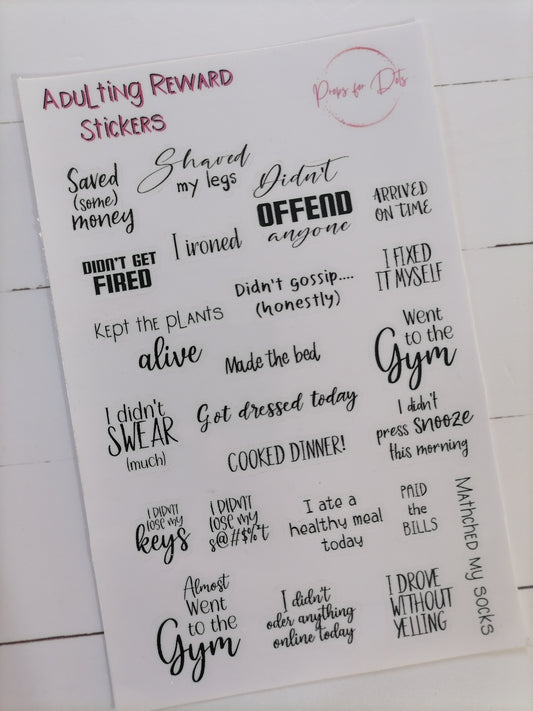 Adulting Reward
Stickers
Props for Dots
Saved
(some)
money
Shaved
my legs
Didn't
OFFEND
anyone
ARRIVED
ON TIME
DIDN'T GET
FIRED
I ironed
Didn't gossip....
(honestly)
I FIXED
IT MYSELF
Kept the plants
alive
Made the bed
Went
to the
Gym
I didn't
SWEAR
(much)
Got dressed today
COOKED DINNER!
I didn't
press SNOOZE
this morning
I DIDN'T
lose my
keys
I DIDN'T
lose my
s@#$%*t
I ate a
healthy meal
today
PAID
the
BILLS
Mathched my socks
Almost
Went
to the
Gym
I didn't
oder anything
online today
I DROVE
WITHOUT
YELLING